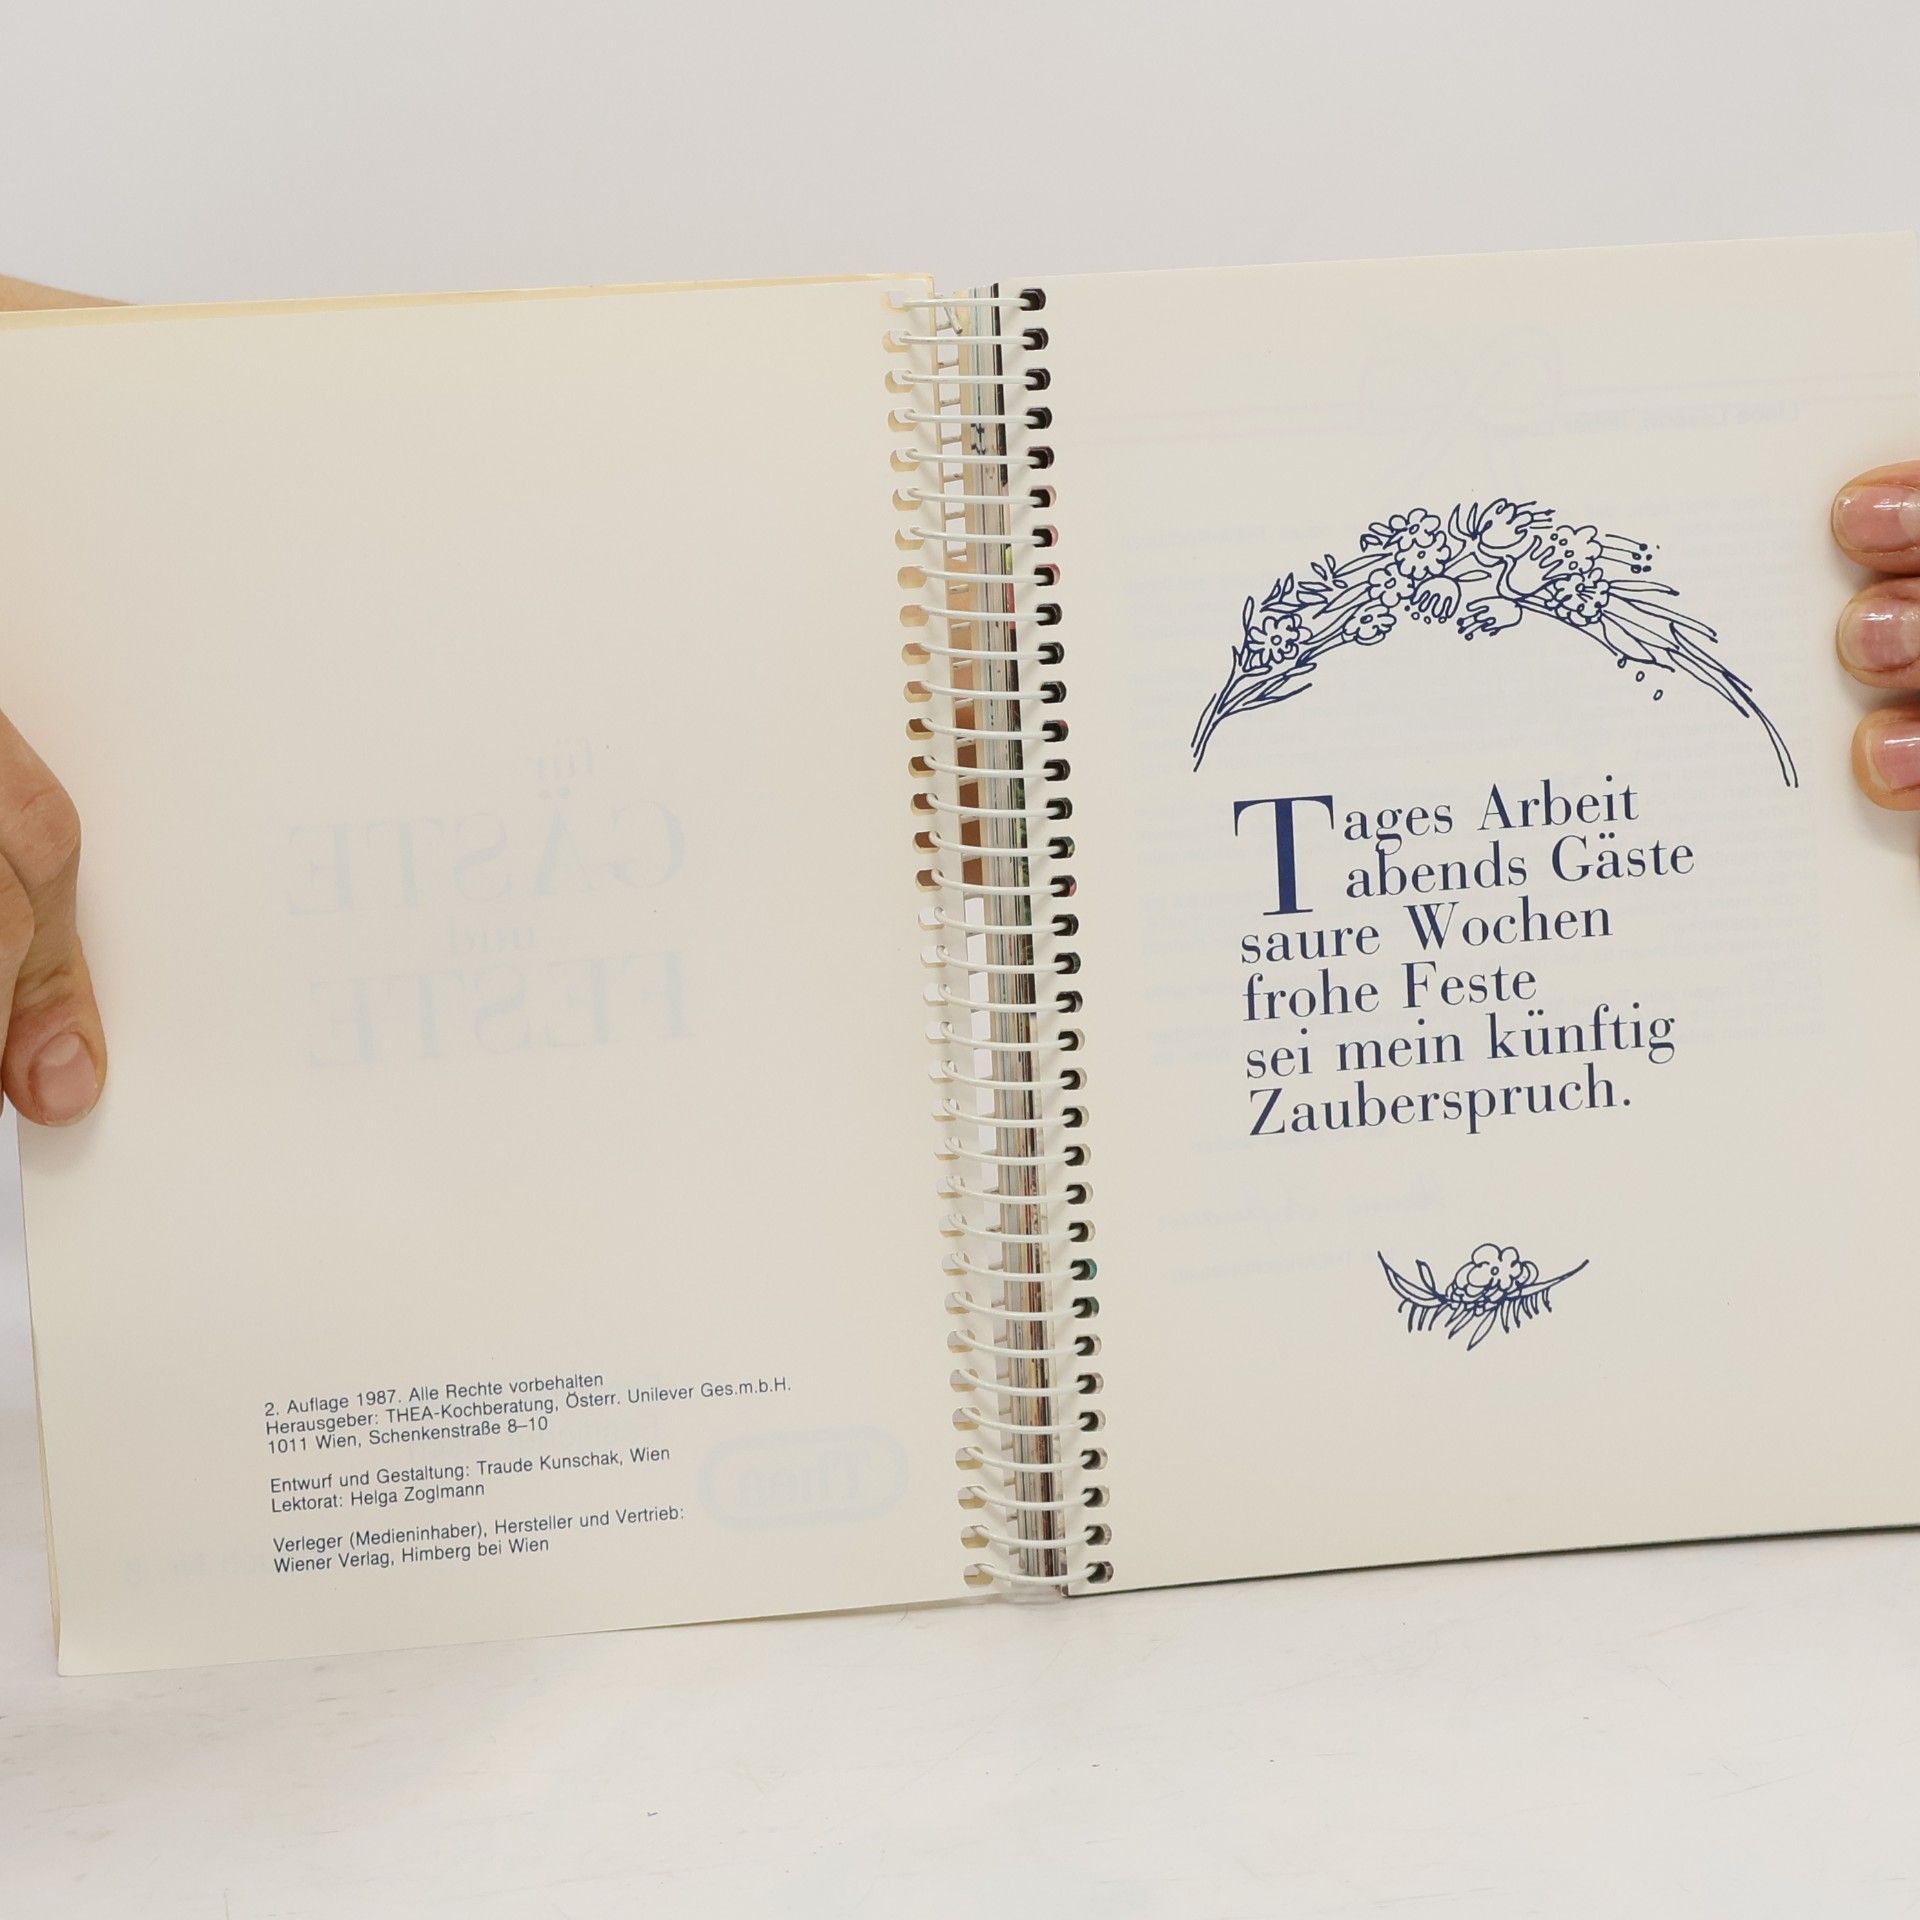 für
GÄSTE
und
FESTE
2. Auflage 1987. Alle Rechte vorbehalten
Herausgeber: THEA-Kochberatung, Österr. Unilever Ges.m.b.H.
1011 Wien, Schenkenstraße 8–10
Entwurf und Gestaltung: Traude Kunschak, Wien
Lektorat: Helga Zoglmann
Thea
Verleger (Medieninhaber), Hersteller und Vertrieb:
Wiener Verlag, Himberg bei Wien
Tages Arbeit
abends Gäste
saure Wochen
frohe Feste
sei mein künftig
Zauberspruch.